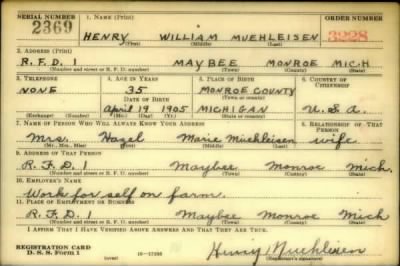 SERIAL NUMBER 1. NAME (Print) ORDER NUMBER
2369 HENRY WILLIAM MUEHLEISEN 3228
(First) (Middle) (Last)
2. ADDRESS (Print)
R.F.D. 1 MAYBEE MONROE MICH
(Number and street or R. F. D. number) (Town) (County) (State)
3. TELEPHONE 4. AGE IN YEARS 5. PLACE OF BIRTH 6. COUNTRY OF CITIZENSHIP
NONE 35 MONROE COUNTY
(Town or county)
DATE OF BIRTH
April 19 1905 MICHIGAN U.S.A.
(Exchange) (Number) (Mo.) (Day) (Yr.) (State or country)
7. NAME OF PERSON WHO WILL ALWAYS KNOW YOUR ADDRESS 8. RELATIONSHIP OF THAT PERSON
Mrs. Hazel Marie Muehleisen wife
(Mr., Mrs., Miss) (First) (Middle) (Last)
9. ADDRESS OF THAT PERSON
R.F.D. 1 Maybee Monroe Mich.
(Number and street or R. F. D. number) (Town) (County) (State)
10. EMPLOYER'S NAME
Work for self on farm.
11. PLACE OF EMPLOYMENT OR BUSINESS
R.F.D. 1 Maybee Monroe Mich
(Number and street or R. F. D. number) (Town) (County) (State)
I AFFIRM THAT I HAVE VERIFIED ABOVE ANSWERS AND THAT THEY ARE TRUE.
REGISTRATION CARD
D. S. S. Form 1 (over) Henry Muehleisen
(Registrant's signature)